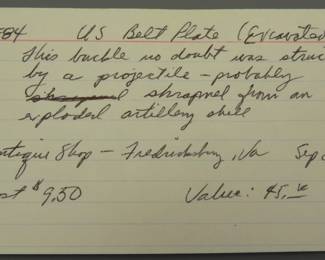 84 US Belt Plate (Excavated
This buckle no doubt was struc
by a projectile – probably
shrapnel from an
exploded artillery shell
ntique Shop – Fredricksburg, Va Sep
st $9.50 Value: 45.